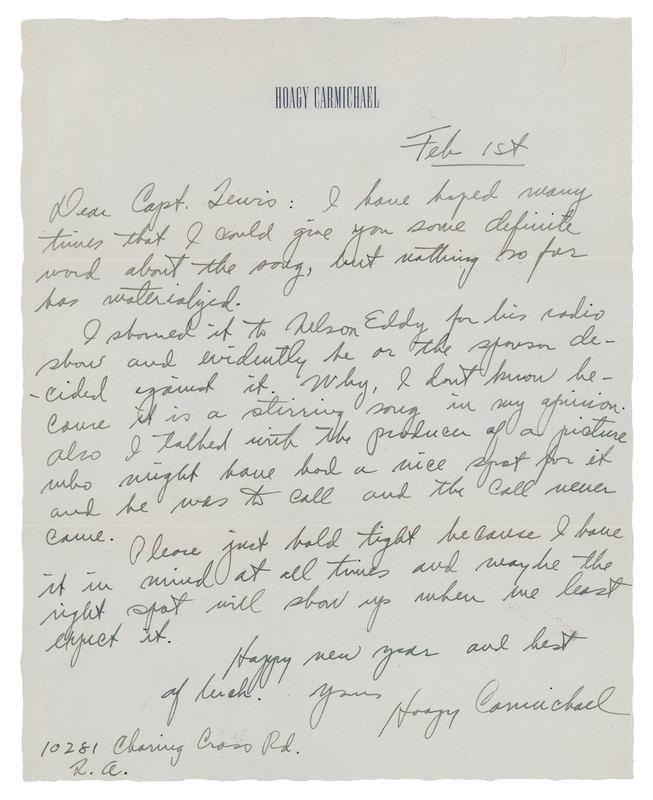 HOAGY CARMICHAEL
Feb 1st
Dear Capt. Lewis: I have hoped many
times that I could give you some definite
word about the song, but nothing so far
has materialized.
I showed it to Nelson Eddy for his radio
show and evidently he or the sponsor de-
-cided against it. Why, I don't know be-
cause it is a stirring song in my opinion.
Also I talked with the producer of a picture
who might have had a nice spot for it
and he was to call and the call never
came.
Please just hold tight because I have
it in mind at all times and maybe the
right spot will show up when we least
expect it.
Happy new year and best
of luck. Yours
Hoagy Carmichael
10281 Charing Cross Rd.
L.A.